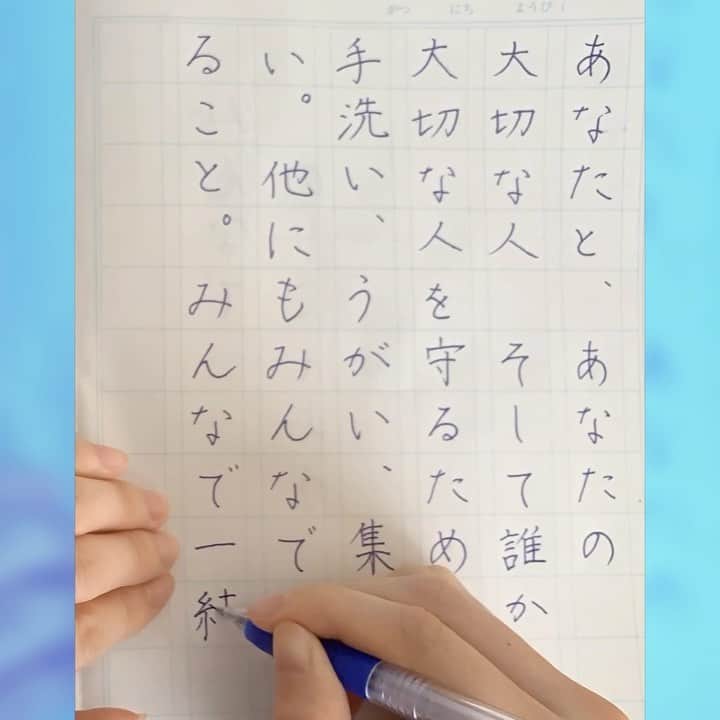 がつ にち ようび
あなたと、あなたの
大切な人 そして誰か
大切な人を守るため
手洗い、うがい、集
い。 他にもみんなで
ること。みんなで一